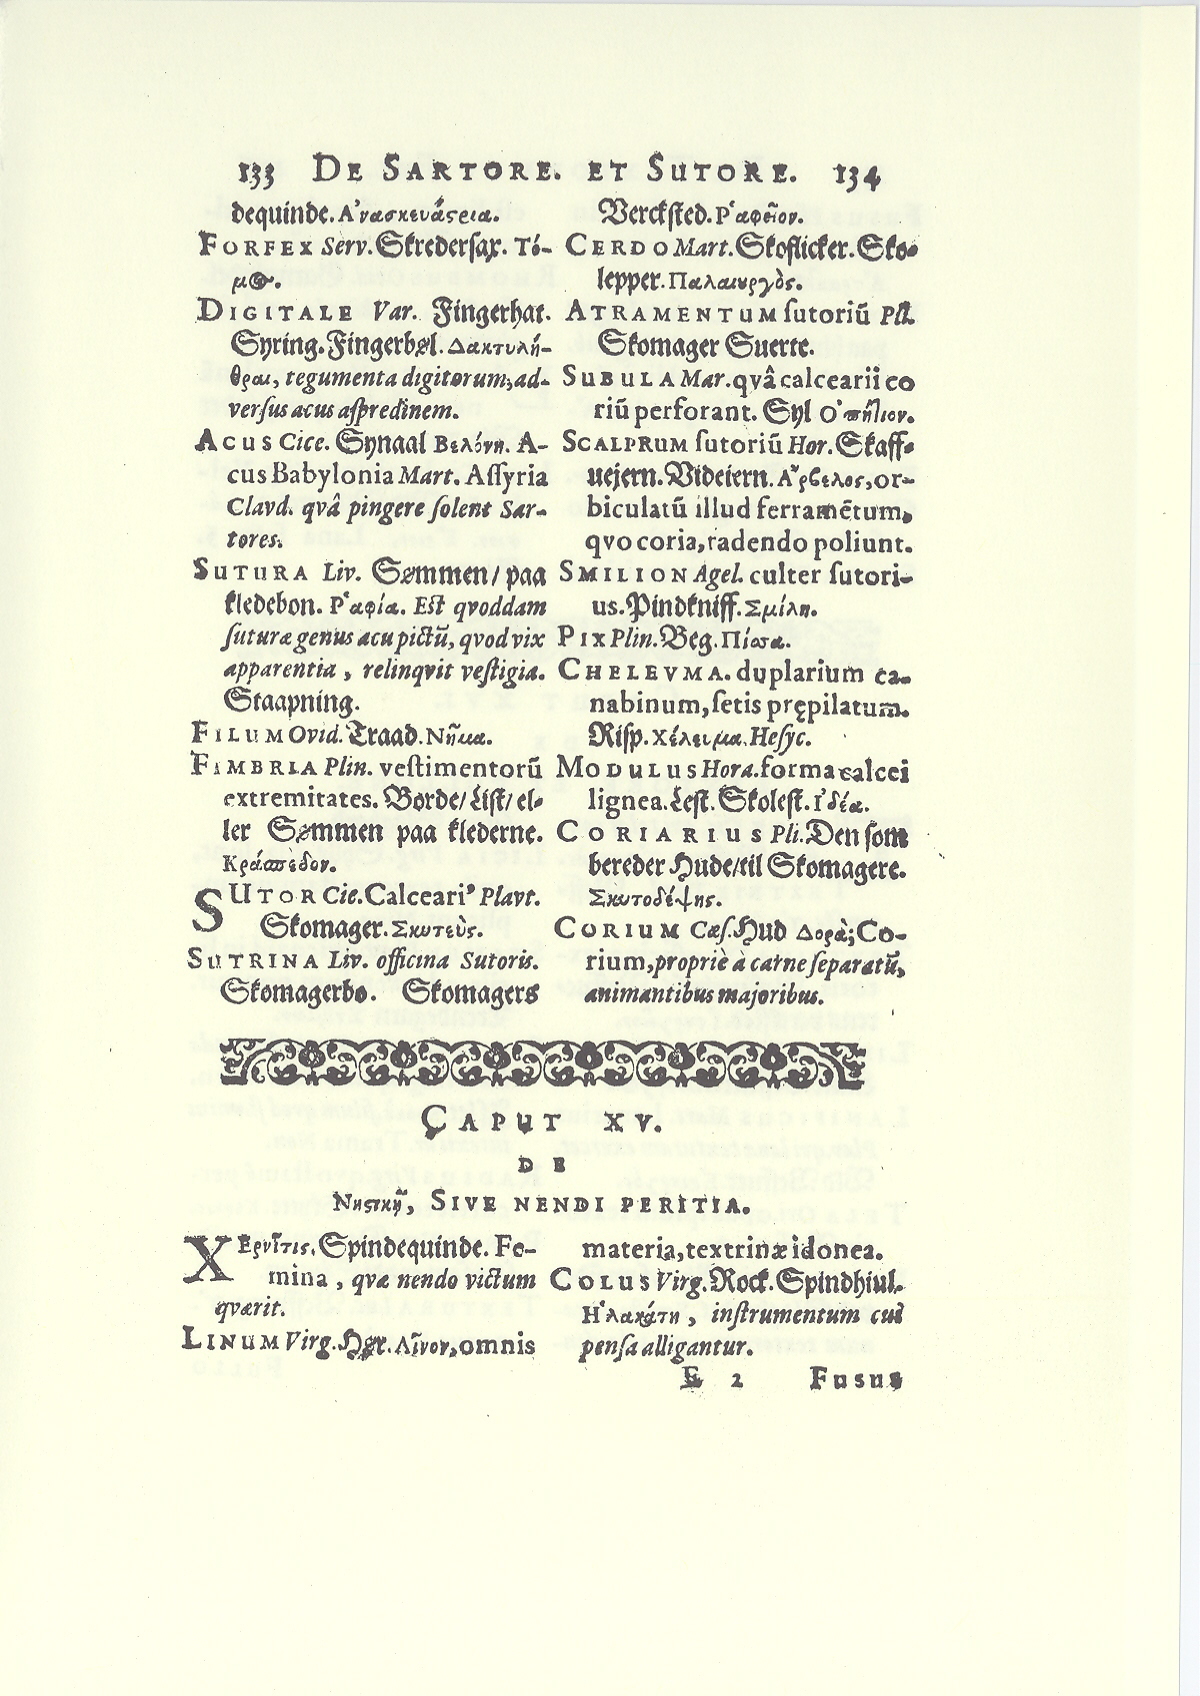 133 DE SARTORE. ET SUTORE. 134
dequinde. Α᾿νασκευάςρια.
FORFEX Serv. Skredersax. Τό-
μ(Θ).
DIGITALE Var. Fingerhat.
Syring. Fingerbøl. Δακτυλή-
θραι, tegumenta digitorum, ad-
versus acus aspredinem.
ACUS Cice. Synaal Βελόνη. A-
cus Babylonia Mart. Assyria
Clavd. qvâ pingere solent Sar-
tores.
SUTURA Liv. Sømmen/ paa
kledebon. Ρ῾αφία. Est qvoddam
suturæ genus acu pictũ, qvod vix
apparentia, relinqvit vestigia.
Staapning.
FILUM Ovid. Traad. Νῆμα.
FIMBRIA Plin. vestimentorũ
extremitates. Borde/ List/ el-
ler Sømmen paa klederne.
Κράσπεδον.
SUTOR Cic. Calceari' Plavt.
Skomager. Σκυτεὺς.
SUTRINA Liv. officina Sutoris.
Skomagerbo. Skomagers
Vercksted. Ρ῾αφεῖον.
CERDO Mart. Skoflicker. Sko-
lepper. Παλαιυργὸς.
ATRAMENTUM sutoriũ Pli.
Skomager Suerte.
SUBULA Mar. qvâ calcearii co
riũ perforant. Syl Ο᾿πήτιον.
SCALPRUM sutoriũ Hor. Skaff-
uejern. Videiern. Α῎ρβελος, or-
biculatũ illud ferramẽtum,
qvo coria, radendo poliunt.
SMILION Agel. culter sutori-
us. Pindkniff. Σμίλη.
PIX Plin. Beg. Πίσσα.
CHELEVMA. duplarium ca-
nabinum, setis prępilatum.
Risp. Χέλευμα. Hesyc.
MODULUS Hora. forma calcei
lignea. Lest. Skolest. Ι᾿δέα.
CORIARIUS Pli. Den som
bereder Hude/ til Skomagere.
Σκυτοδέψης.
CORIUM Cæs. Hud Δορὰ; Co-
rium, propriè à carne separatũ,
animantibus majoribus.
CAPUT XV.
DE
Νηστικῇ, SIVE NENDI PERITIA.
ΧΕρνῖτις. Spindequinde. Fe-
mina, qvæ nendo victum
qværit.
LINUM Virg. Hør. Λῖνον, omnis
materia, textrinæ idonea.
COLUS Virg. Rock. Spindhiul.
Η᾿λακάτη, instrumentum cui
pensa alligantur.
E 2 Fusus